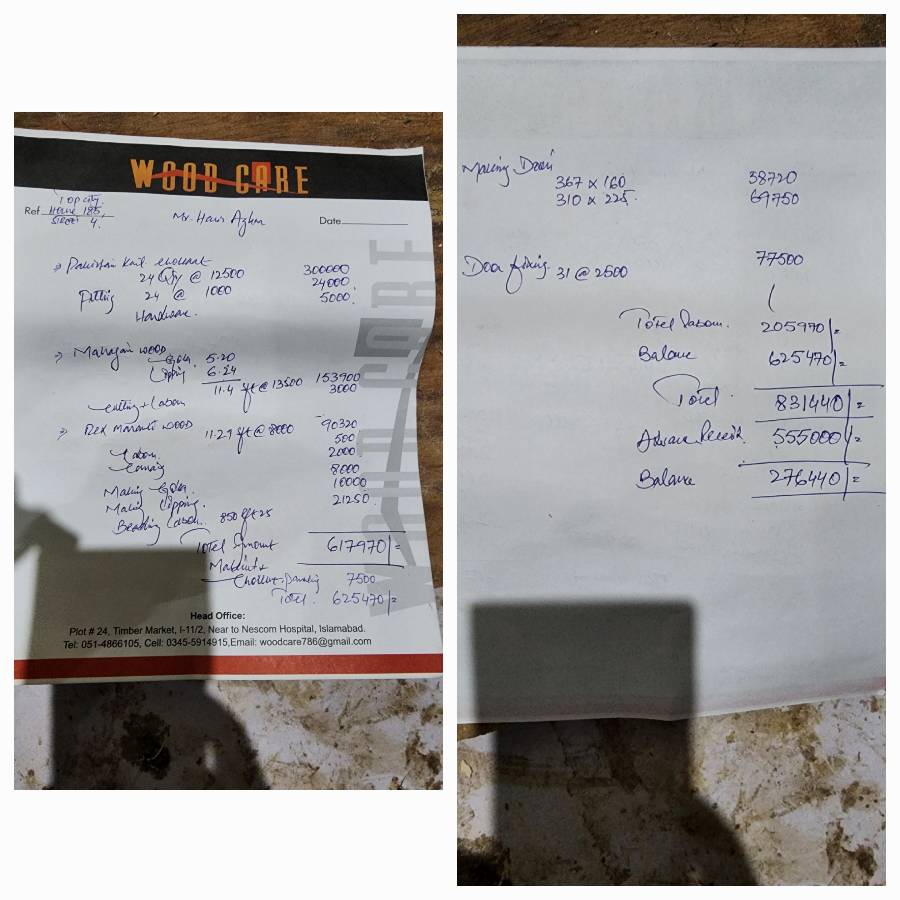 WOOD CARE
Top city
Ref House 185,
Street 4.
Mr. Haris Azhar
Date
Pakistan Kail chokhat
24 Qty @ 12500 300000
Fitting 24 @ 1000 24000
Hardware. 5000
WOOD
5.20
6.24
11.4 sft @ 13500 153900
Cutting + Labour 3000
Rex Maranti WOOD
11.29 sft @ 8000 90320
Labour 500
2000
Making Gola. 8000
Making Lipping. 10000
Beading Labour 850 ft 25 21250
Total Amount 617970/=
7500
Total. 625470/=
WOOD CARE
Head Office:
Plot # 24, Timber Market, I-11/2, Near to Nescom Hospital, Islamabad.
Tel: 051-4866105, Cell: 0345-5914915,Email: woodcare786@gmail.com
Making Door
367 x 160 38720
310 x 225. 69750
Door fixing. 31 @ 2500 77500
Total Labour. 205970/=
Balance 625470/=
Total. 831440/=
Advance Receivd. 555000/=
Balance 276440/=